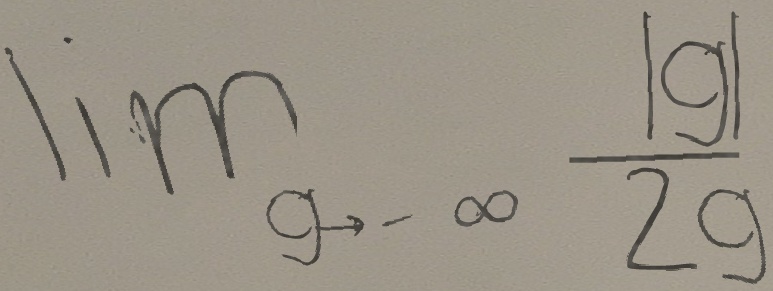 lim_{g→-∞} \frac{|g|}{2g}